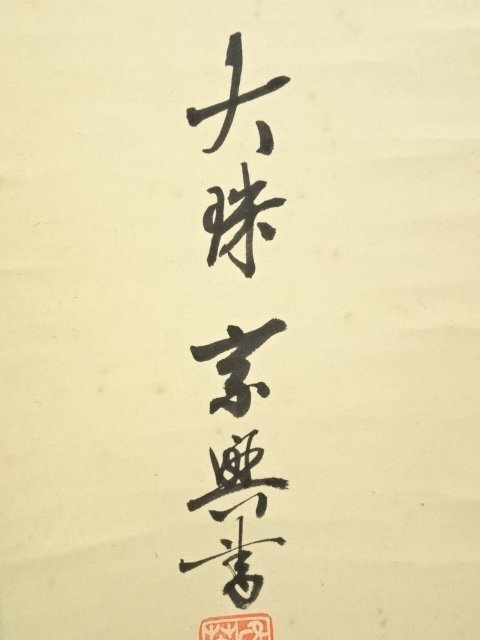 大珠宗興書